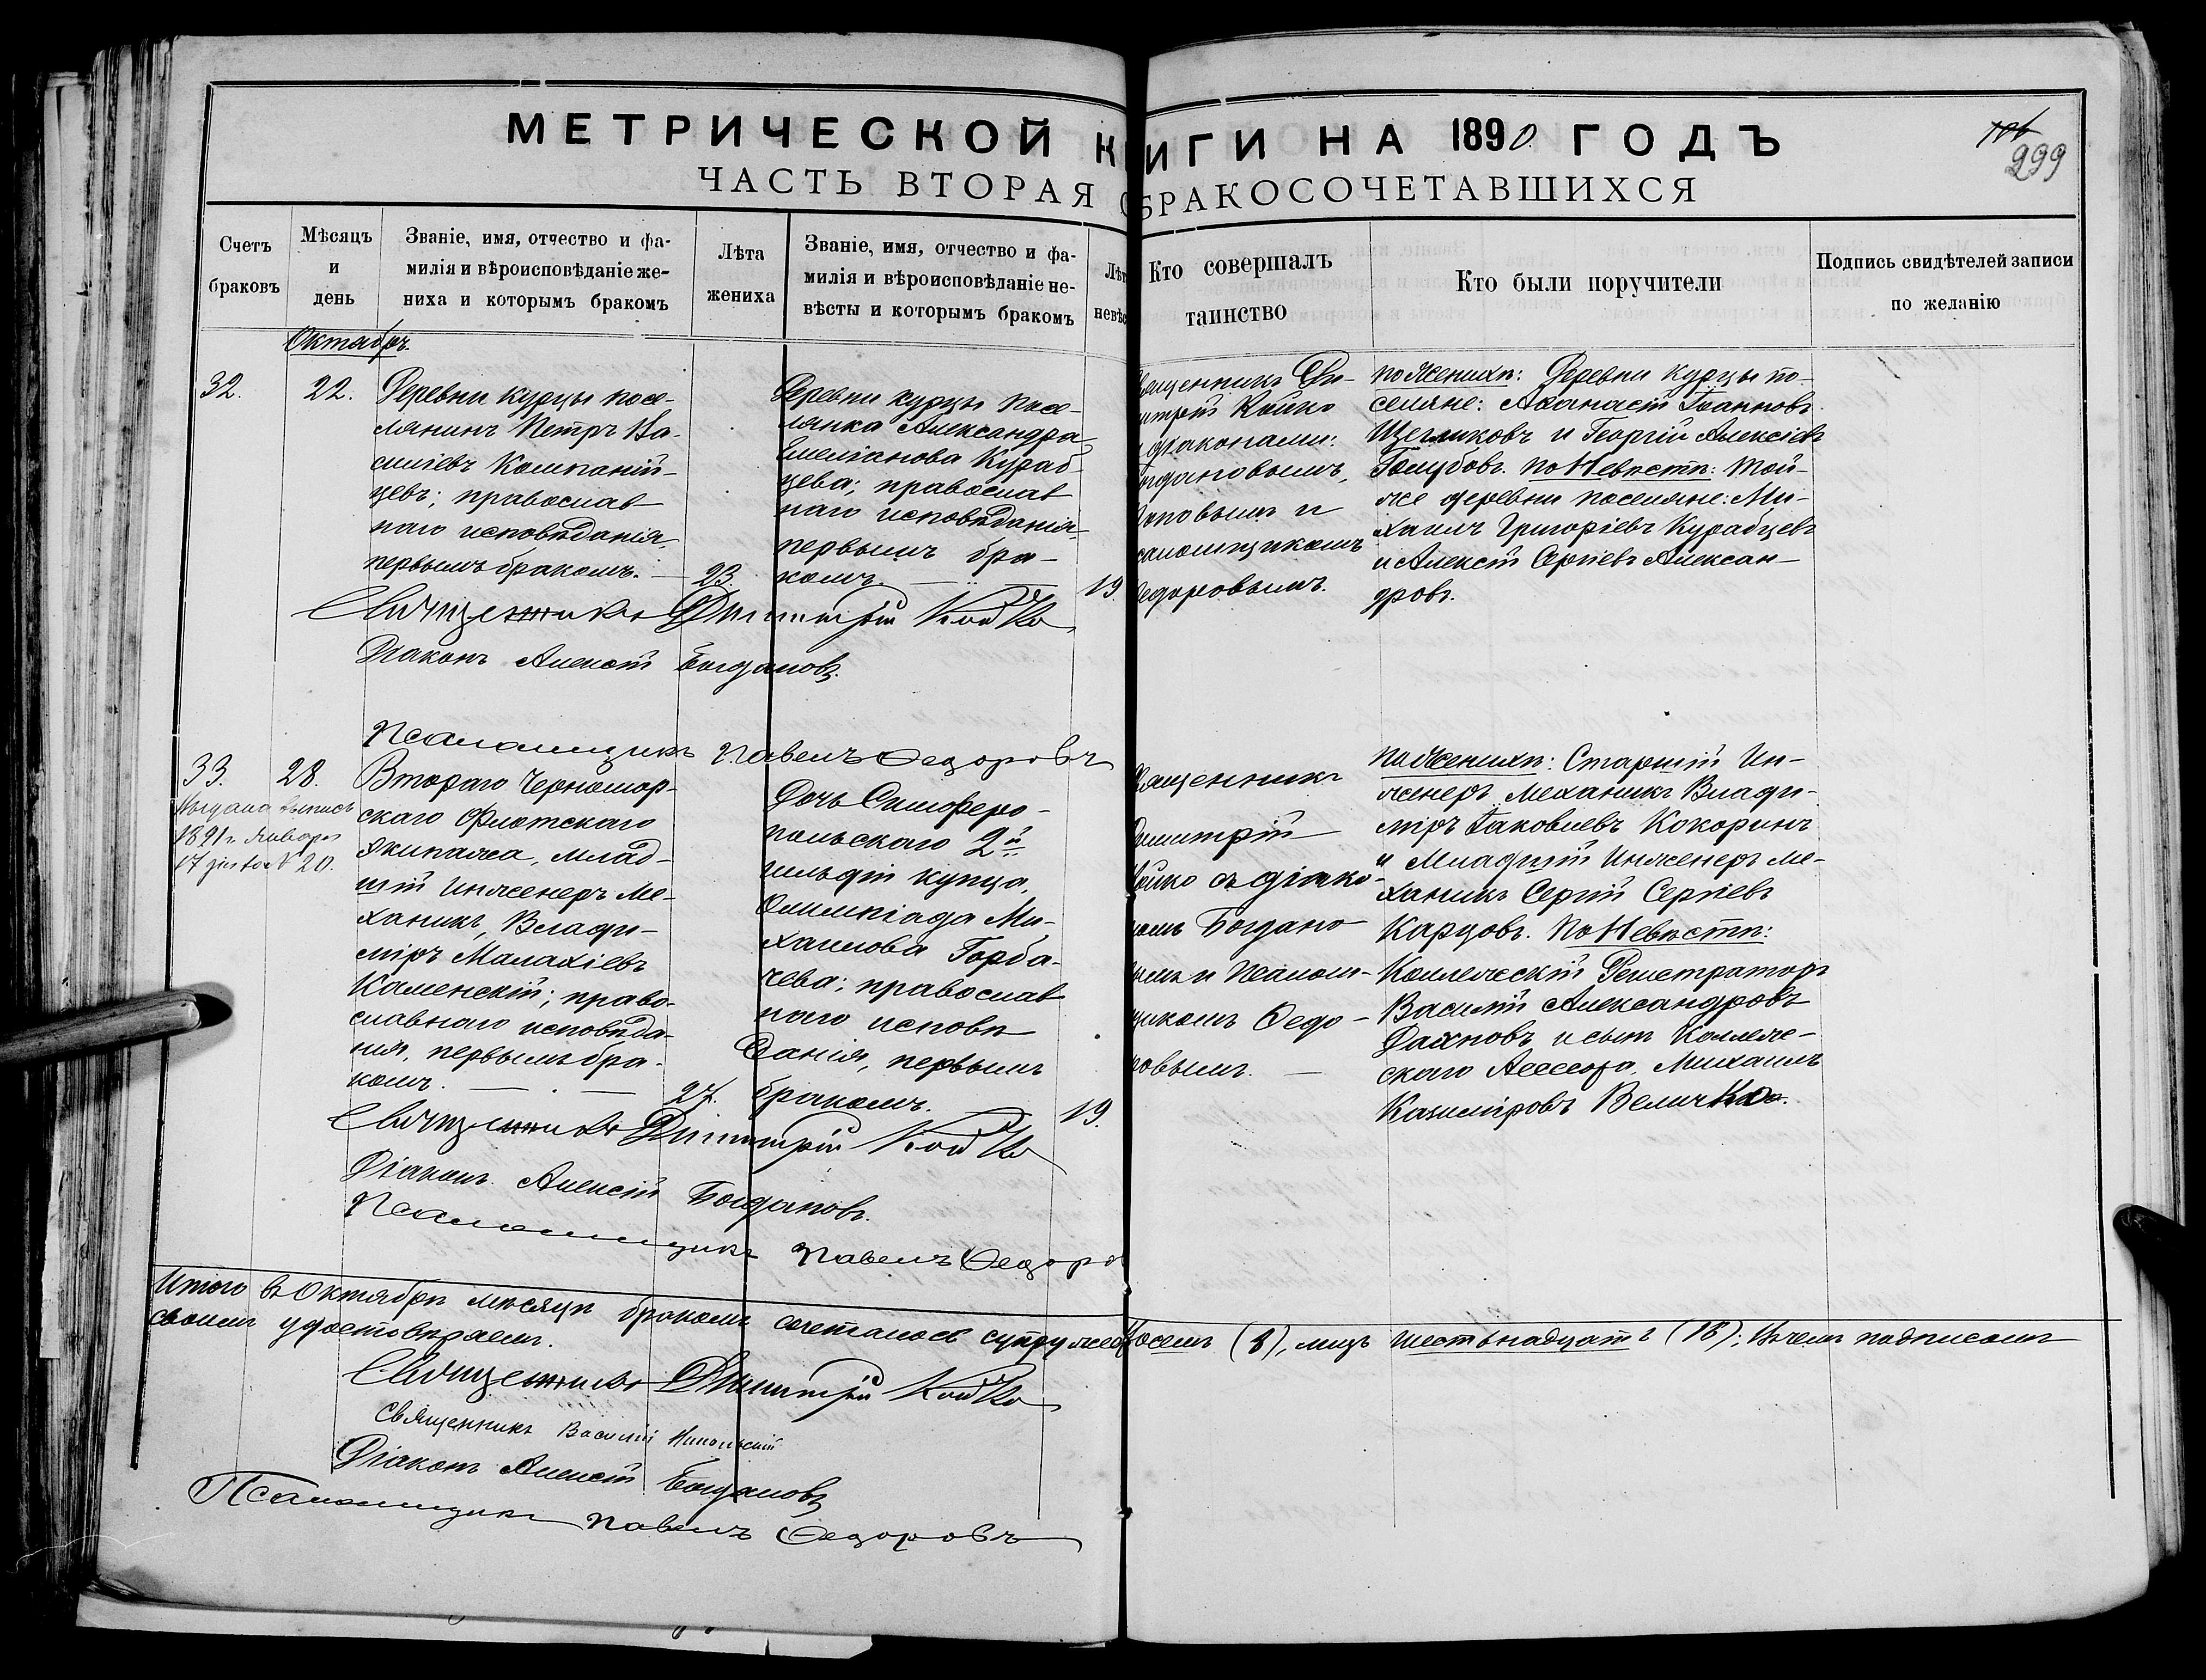 МЕТРИЧЕСКОЙ К
ИГИ НА 1890 ГОДЪ
299
ЧАСТЬ ВТОРАЯ О
БРАКОСОЧЕТАВШИХСЯ
Счетъ
браковъ
Мѣсяцъ
и
день
Званіе, имя, отчество и фа-
милія и вѣроисповѣданіе же-
ниха и которымъ бракомъ
Лѣта
жениха
Званіе, имя, отчество и фа-
милія и вѣроисповѣданіе не-
вѣсты и которымъ бракомъ
Лѣт
невѣс
Кто совершалъ
таинство
Кто были поручители
Подпись свидѣтелей записи
по желанію
Октябрь.
32.
22.
Деревни Курцы посе-
лянинъ Петръ Ва-
силіевъ Компаній-
цевъ; православ
наго исповѣданія,
первымъ бракомъ.
23.
Деревни Курцы посе-
лянка Александра
Емеліанова Кураб-
цева; православ
наго исповѣданія
первымъ бра-
комъ.
19.
вященникъ Ди-
итрій Койко
діаконами:
огдановымъ,
повымъ и
саломщикомъ
едоровымъ.
по Женихѣ: Деревни Курцы по-
селяне: Аѳанасій Іоанновъ
Щегликовъ и Георгій Алексіевъ
Голубовъ. По Невѣстѣ: той-
же деревни поселяне: Ми-
хаилъ Григоріевъ Курабцевъ
и Алексій Сергіевъ Алексан-
дровъ.
Священникъ Димитрій Койко
Діаконъ Алексій Богдановъ.
Псаломщикъ Павелъ Ѳедоровъ
33.
28.
Выдана выпись
1891 г. Января
17 дня за № 20.
Втораго Черномор-
скаго Флотскаго
экипажа, млад-
шій Инженеръ Ме-
ханикъ, Влади-
міръ Малахіевъ
Каменскій; право-
славнаго исповѣда-
нія, первымъ бра-
комъ.
27.
Дочь Симферо-
польскаго 2й
гильдіи купца,
Олимпіада Ми-
хаилова Горба-
чева; православ
наго исповѣ
данія, первымъ
бракомъ.
19.
вященникъ
Димитрій
Койко съ діако-
номъ Богдано
вымъ и Псалом-
щикомъ Ѳедо-
ровымъ.
По Женихѣ: Старшій Ин-
женеръ Механикъ Влади-
міръ Іаковлевъ Кокоринъ
и Младшій Инженеръ Ме-
ханикъ Сергій Сергіевъ
Карцовъ. По Невѣстѣ:
Коллежскій Регистраторъ
Василій Александровъ
Дахновъ и сынъ Коллеж-
скаго Ассесора, Михаилъ
Казиміровъ Величко.
Священникъ Димитрій Койко
Діаконъ Алексій Богдановъ.
Псаломщикъ Павелъ Ѳедоро
Итого въ Октябрѣ мѣсяцѣ бракомъ сочеталось супружес восемь (8), лицъ шестьнадцать (16); въ чемъ подписомъ
своимъ удостовѣряемъ.
Священникъ Димитрій Койко
Священникъ Василій Никольскій
Діаконъ Алексій Богдановъ
Псаломщикъ Павелъ Ѳедоровъ